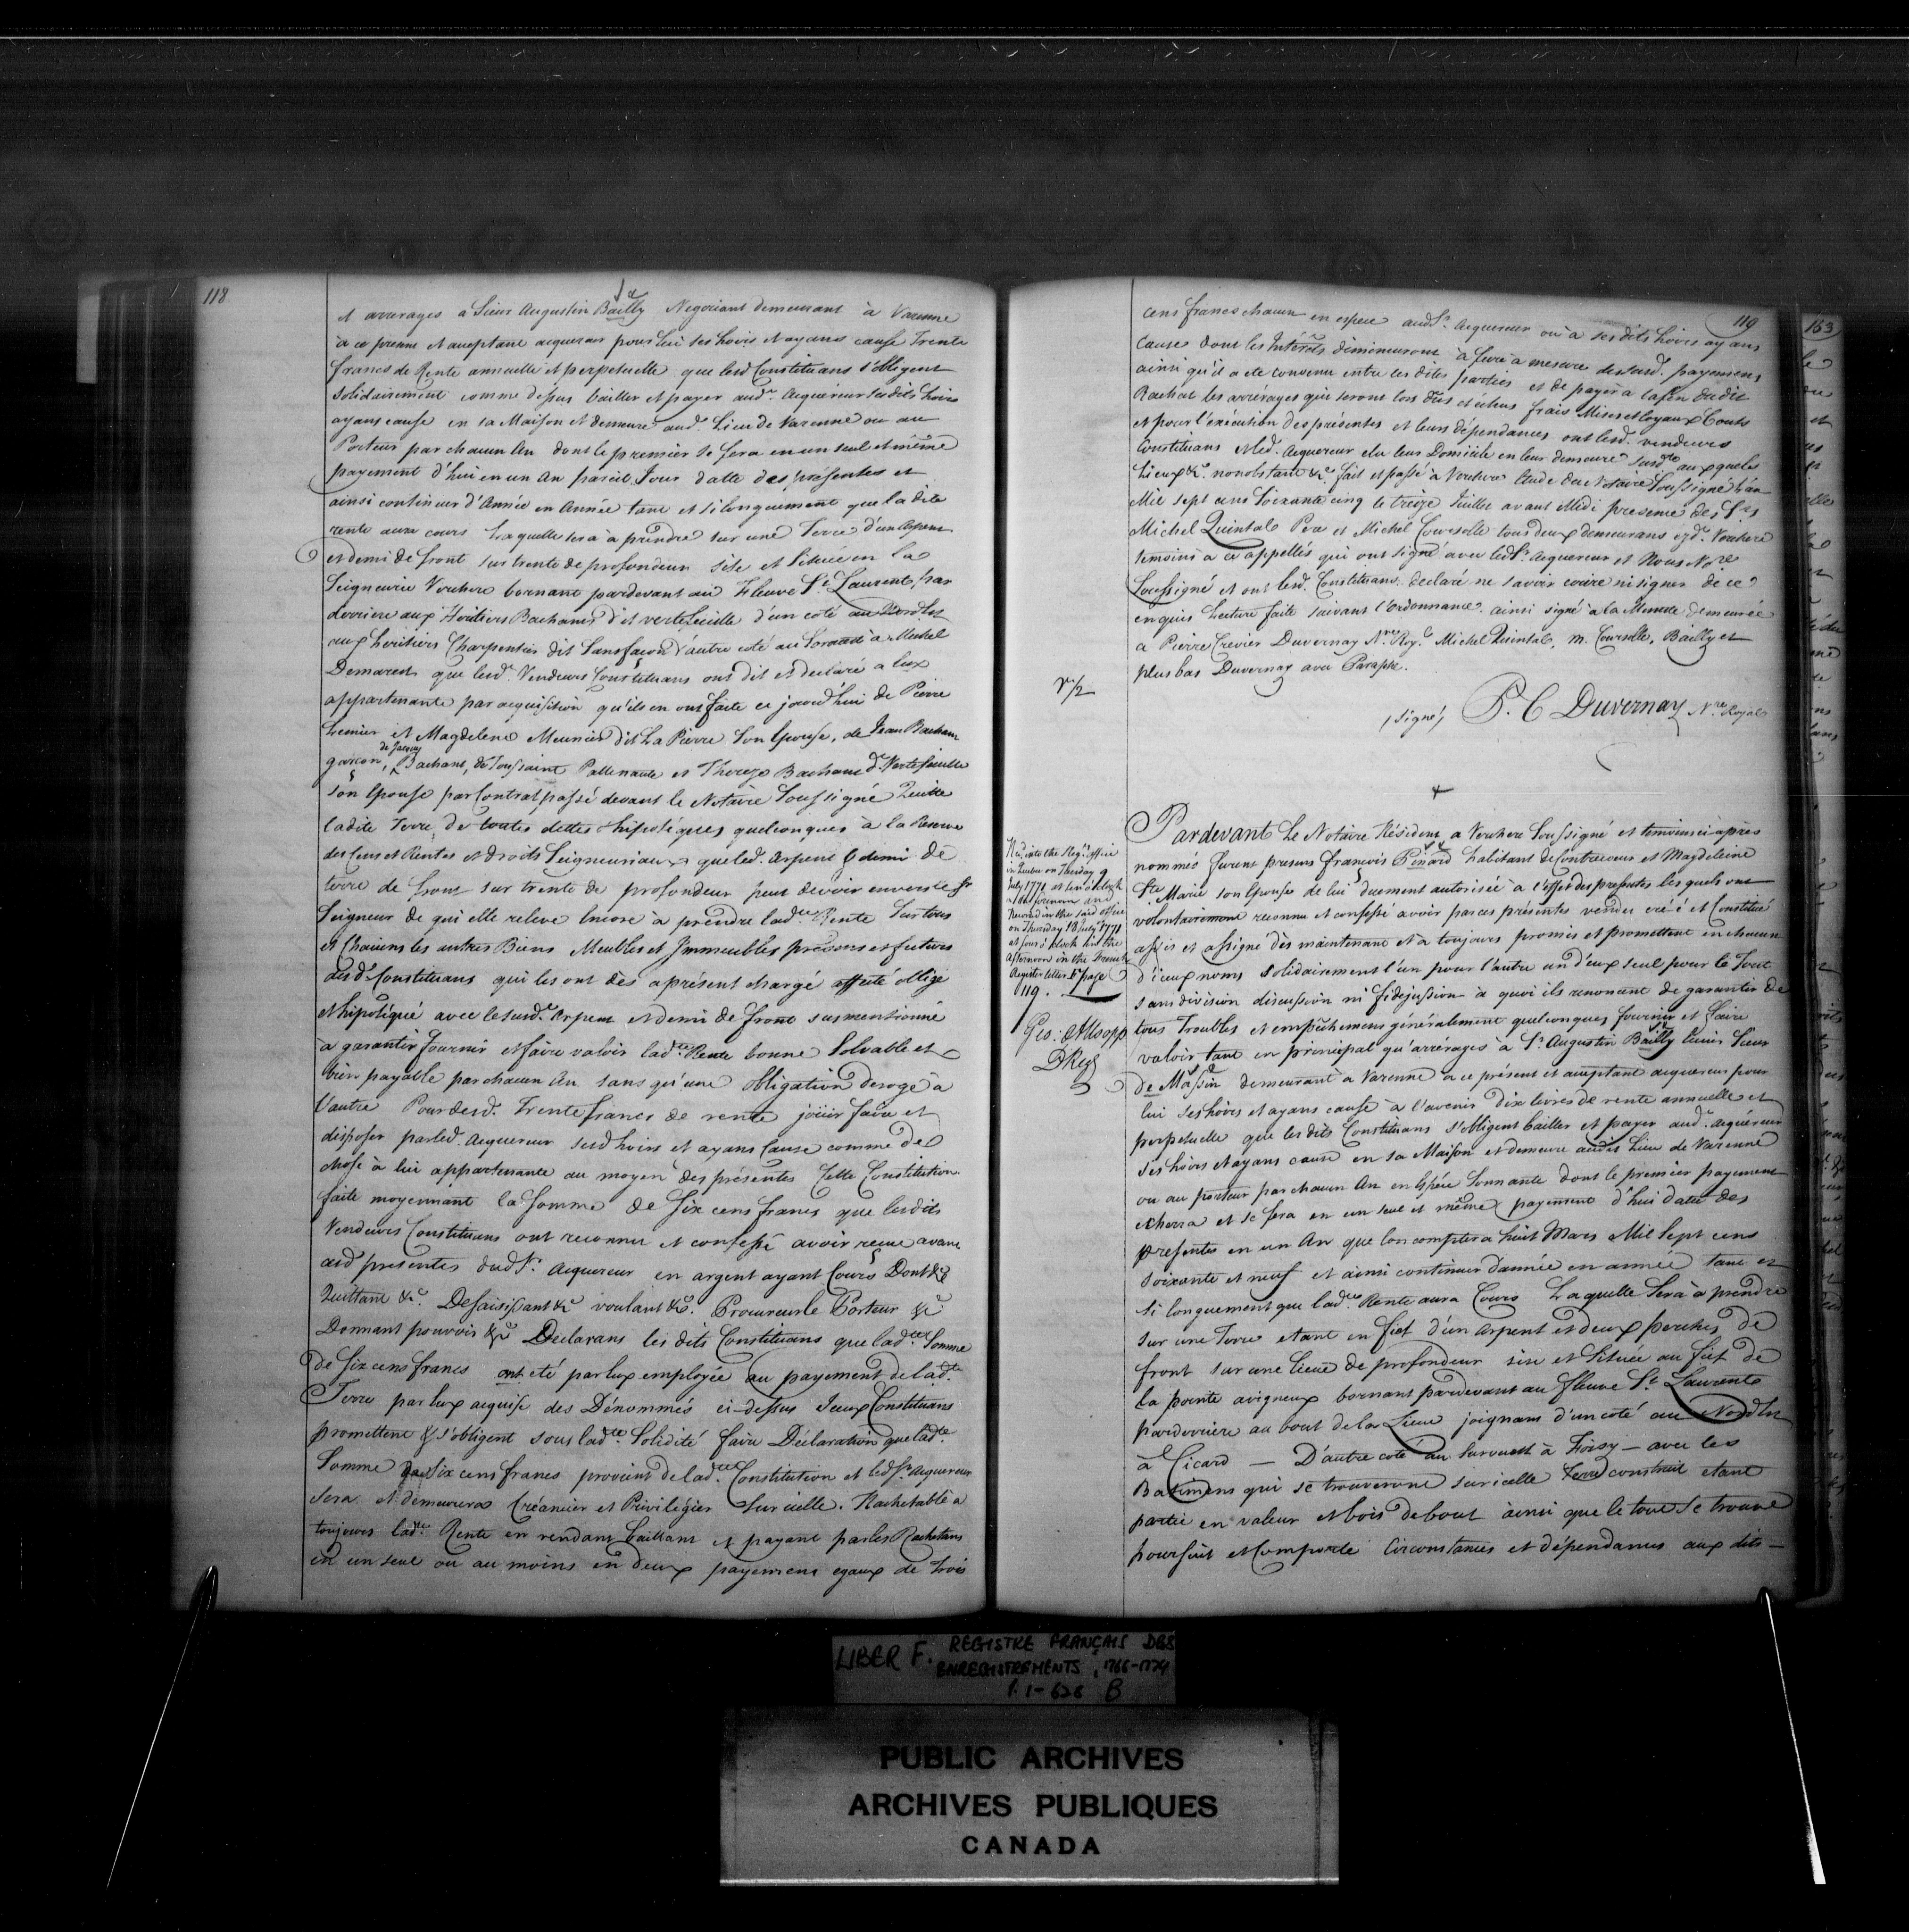 118
et arrerages a Sieur Augustin Bailly Negociant demeurant à Varenne
à ce present et acceptant acquereur pour lui ses hoirs et ayans cause Trente
francs de Rente annuelle et perpetuelle que lesd Constituans s'obligent
solidairement comme dessus bailler et payer aud. Acquéreur sesdits hoirs
ayans cause en sa Maison et demeure aud. Lieu de Varenne ou au
Porteur par chacun An dont le premier se fera en un seul et même
payement d'hui en un An pareil Jour datte des présentes et
ainsi continuer d'Année en Année tant et si longuement que la dite
rente aura cours Laquelle sera à prendre sur une Terre d'un Arpent
et demi de front sur trente de profondeur sise et située en la
Seigneurie Verchere bornant pardevant au Fleuve St. Laurent, par
derriere aux Heritiers Bachand dit vertefeuille d'un coté au Nord Est
aux heritiers Charpentier dit Sansfacon d'autre coté au Sorouet à Michel
Demarest que lesd. Vendeurs Constituans ont dit et declaré a Eux
appartenante par acquisition qu'ils en ont faite ce jourd'hui de Pierre
et Magdelene Meunier dit La Pierre Son Epouse, de Jean Bachant
de Jacques
garcon, Bachant, de Toussaint Pattenaude et Thereze Bachand dt. Vertefeuille
son Epouse par Contrat passé devant le Notaire Soussigné Quitte
ladite Terre de toutes dettes & hipotéques quelconques à la Reserve
des Cens et Rentes et droits Seigneuriaux que led. Arpent & demi de
terre de front sur trente de profondeur peut devoir envers le Sr
Seigneur de qui elle releve Encore à prendre lad.te Rente Sur tous
et Chacuns les autres Biens Meubles et Immeubles présens et futurs
desd. Constituans qui les ont dès aprésent chargé affecté obligé
et hipotéqué avec le susd. Arpent et demi de front susmentionné
à garantir fournir et faire valoir lad.te Rente bonne Solvable et
bien payable par chacun An sans qu'une obligation deroge à
l'autre Pour desd. Trente francs de rente joüir faire et
disposer par led. Acquereur sesd hoirs et ayans Cause comme de
chose à lui appartenante au moyen des présentes Cette Constitution
faite moyennant la Somme de Six cens francs que lesdits
Vendeurs Constituans ont reconnu et confessé avoir reçue avant
cesd presentes dud Sr. Acquereur en argent ayant Cours Dont &c
Quittant &c. Desaisissant &c voulant &c. Procureur le Porteur &c
Donnant pouvoir &c Declarans les dits Constituans que lad.te Somme
de Six cens francs ont eté par Eux employée au payement de lad.te
Terre par Eux acquise des Dénommés ci-dessus Iceux Constituans
promettent & s'obligent sous lad.te Solidité faire Déclaration que lad.te
Somme de Six cens francs provient de lad.te Constitution et led Sr. Acquereur
sera et demeurera Créancier et Privilégier Sur icelle. Rachetable à
toujours lad.te Rente en rendant baillant et payant par les Rachetans
en un seul ou au moins en deux payemens egaux de trois
119
cens francs chacun en espece aud Sr. Acquereur ou à ses dits hoirs ayans
Cause dont les Intérêts diminueront à fur & a mesure desd. payemens
ainsi qu'il a eté convenu entre les dites parties et de payer a la fin dudit
Rachat les arrérages qui seront lors dûs et échus frais Mises et loyaux Couts
et pour l'exécution des présentes et leurs dépendances ont lesd. vendeurs
Constituans et led. Acquereur elu leur Domicile en leur demeure susd.te auxquels
Lieux &c. nonobstant &c. fait et passé à Verchere Etude du Notaire Soussigné l'an
Mil sept cens Soixante cinq le treize Juillet avant Midi presence des Srs
Michel Quintal Pere et Michel Courselle tous deux demeurans aud. Verchere
temoins a ce appellés qui ont signé avec led Sr. Acquereur et Nous Nore
Soussigné et ont lesd. Constituans declaré ne savoir ecrire ni signer de ce
enquis Lecture faite suivant l'Ordonnance. ainsi signé a la Minute demeurée
a Pierre Crevier Duvernay Nre. Roy.l Michel Quintal, M. Courselle, Bailly et
plus bas Duvernay avec Paraphe.
/signé/ P. C Duvernay Nre. Royal
Pardevant Le Notaire Résident a Verchere Soussigné et temoins ci après
nommés furent presens francois Pinard habitant de Contrecoeur et Magdeleine
Ste. Marie son Epouse de lui duement autorisée à l'effet des presentes les quels ont
volontairement reconnu et confessé avoir par ces présentes vendu créé et Constitué
assis et assigné dès maintenant et à toujours promis et promettent en chacun
d'iceux noms solidairement l'un pour l'autre un d'eux seul pour le Tout
sans division discussion ni fidejussion à quoi ils renoncent de garantir de
tous Troubles et empêchemens généralement quelconques fournir et faire
valoir tant en principal qu'arrérages à Sr. Augustin Bailly Ecuier Sieur
de Massin demeurant à Varenne à ce présent et acceptant acquereur pour
lui ses hoirs et ayans cause à l'avenir dix livres de rente annuelle et
perpetuelle que les dits Constituans s'obligent bailler et payer aud. Acquéreur
ses hoirs et ayans cause en sa Maison et demeure audit Lieu de Varenne
ou au porteur par chacun An en Espece Sonnante dont le premier payement
echerra et se fera en un seul et même payement d'hui date des
presentes en un An que l'on comptera huit Mars Mil Sept cens
soixante et neuf et ainsi continuer d'année en année tant et
si longuement que lad.te Rente aura Cours Laquelle Sera à prendre
sur une Terre etant en fief d'un Arpent et deux perches de
front sur une lieue de profondeur sise et située au fief de
la pointe aux igneux bornant pardevant au fleuve St. Laurent
par derriere au bout de la Lieue joignant d'un coté au Nord Est
à Cicard — D'autre coté au Surouest à Foisy — avec les
Batimens qui se trouveront sur icelle Terre construit etant
partie en valeur et bois debout ainsi que le tout se trouve
poursuit et Comporte Circonstances et dépendances aux dits —
V/2
Recd. into the Regrs. office
in Quebec on Tuesday 9
July 1771 at ten o'clock
in the forenoon and
Record in the said office
on Thursday 18 July 1771
at four o'clock in the
afternoon in the French
Register letter F page
119.
Geo: Allsopp
D Reg
163
LIBER F. REGISTRE FRANÇAIS DES
ENREGISTREMENTS, 1766-1774
P. 1-628 B
PUBLIC ARCHIVES
ARCHIVES PUBLIQUES
CANADA